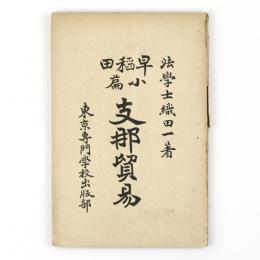 法學士織田一著
早稲田小篇
支那貿易
東京専門学校出版部